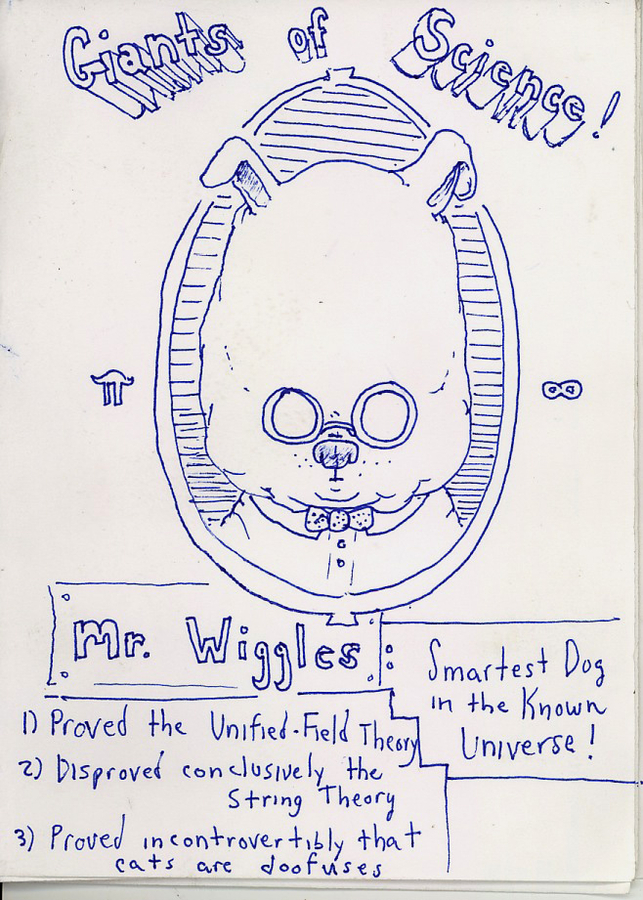 Giants of Science!
π ∞
Mr. Wiggles:
Smartest Dog
in the Known
Universe!
1) Proved the Unified-Field Theory
2) Disproved conclusively the
String Theory
3) Proved incontrovertibly that
cats are doofuses